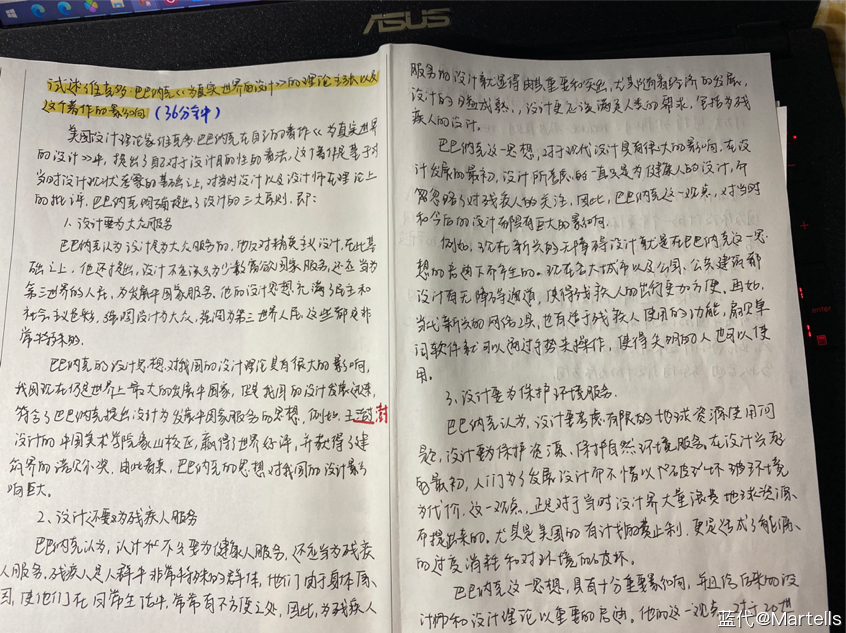 ASUS
试述维克多·巴巴纳克《为真实世界的设计》的理论主张以及
这个著作的影响 (36分钟)
美国设计理论家维克多·巴巴纳克在自己的著作《为真实世界
的设计》中,提出了自己对于设计目的性的看法,这个著作是基于对
当时设计现状 的基础之上,对当时设计以及设计师在理论上
的批评,巴巴纳克明确提出了设计的三大原则,即:
1.设计要为大众服务
巴巴纳克认为设计是为大众服务的,他反对精英主义设计,在此基
础之上,他还提出,设计不应该只为少数富裕国家服务,还应当为
第三世界的人民,为发展中国家服务,他的设计思想充满了民主和
社会主义色彩,强调设计为大众,强调为第三世界人民,这些都是非
常特殊的。
巴巴纳克的设计思想,对我国的设计理论具有很大的影响,
我国现在仍是世界上最大的发展中国家,但是我国的设计发展迅速,
符合了巴巴纳克提出设计为发展中国家服务的思想,例如,王澍
设计的中国美术学院象山校区,赢得了世界好评,并获得了建
筑界的诺贝尔奖,由此看来,巴巴纳克的思想对我国的设计影
响巨大。
2、设计还要为残疾人服务
巴巴纳克认为,设计不只要为健康人服务,还应当为残疾
人服务,残疾人是人群中非常特殊的群体,他们由于身体原
因,使他们在日常生活中,常常有不方便之处,因此,为残疾人
服务的设计就显得由其重要和突出,尤其随着经济的发展,
设计的日趋成熟,设计更应该满足人类的需求,包括为残
疾人的设计。
巴巴纳克这一思想,对于现代设计具有很大的影响,在设
计发展的最初,设计所考虑的一直只是为健康人的设计,而
忽略了对残疾人的关注,因此,巴巴纳克这一观点,对当时
和今后的设计有很有巨大的影响。
例如,现在新兴的无障碍设计就是在巴巴纳克这一思
想的启迪下而产生的。现在各大城市以及公园、公共建筑都
设计有无障碍通道,使得残疾人的出行更加方便,再如,
当代新兴的网络工具,也有适于残疾人使用的功能,
词软件就可以通过手势来操作,使得失明的人也可以使
用。
3、设计要为保护环境服务。
巴巴纳克认为,设计要考虑有限的地球资源使用问
题,设计要为保护资源、保护自然环境服务,在设计发展
的最初,人们为了发展设计而不惜以破坏环境
为代价,这一观点,正是对于当时设计界大量浪费地球资源、
而提出来的,尤其是美国的有计划的废止制,更是造成了能源
的过度消耗和对环境的破坏。
巴巴纳克这一思想,具有十分重要影响,并且给后来的设
计师和设计理论以重要的启迪。他的这一观点,对于20世
enter
蓝代@Martells